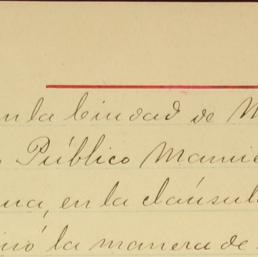 en la Ciudad de M
Público Manu
na, en la cláusul
inó la manera de